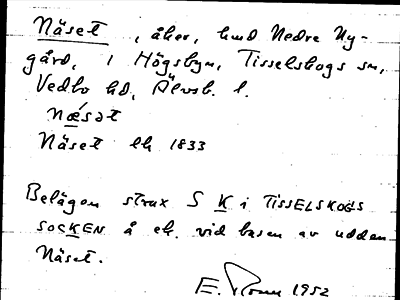 Näset, åker, hmd Nedre Ny-
gård, i Högsbyn, Tisselskogs sn,
Vedbo hd, Älvsb. l.
næ´sət
Näset ek 1833
Belägen strax S K i TISSELSKOGS
SOCKEN å ek. vid basen av udden
Näset.
E. 1952